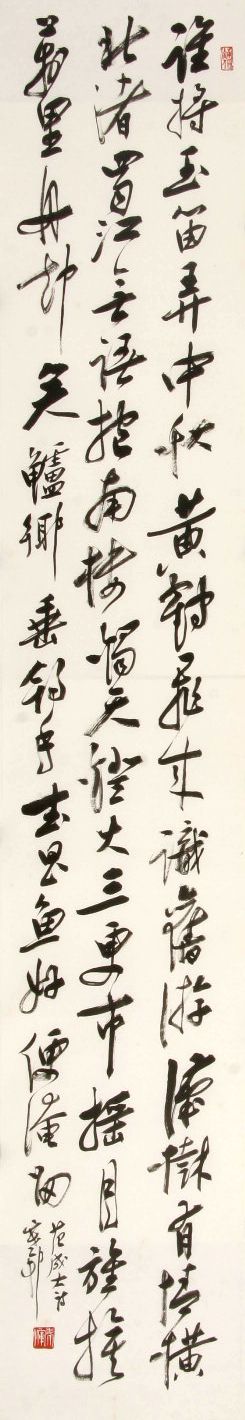 誰將玉笛弄中秋黃鶴飛來識舊游漢樹有情橫
北渚蜀江無語抱南樓燭天燈火三更市搖月旌旗
萬里舟却笑鱸鄉垂釣手武昌鱼好便淹留
范成大詩